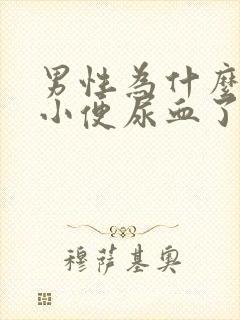 男性為什麼
小便尿血了
穆薩基奧